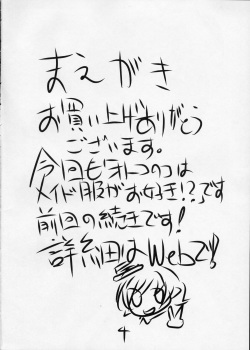 まえがき
お買い上げありがとう
ございます。
今回も「オトコのコは
メイド服がお好き!?」です
前回の続きです!
詳細はWebで!
4